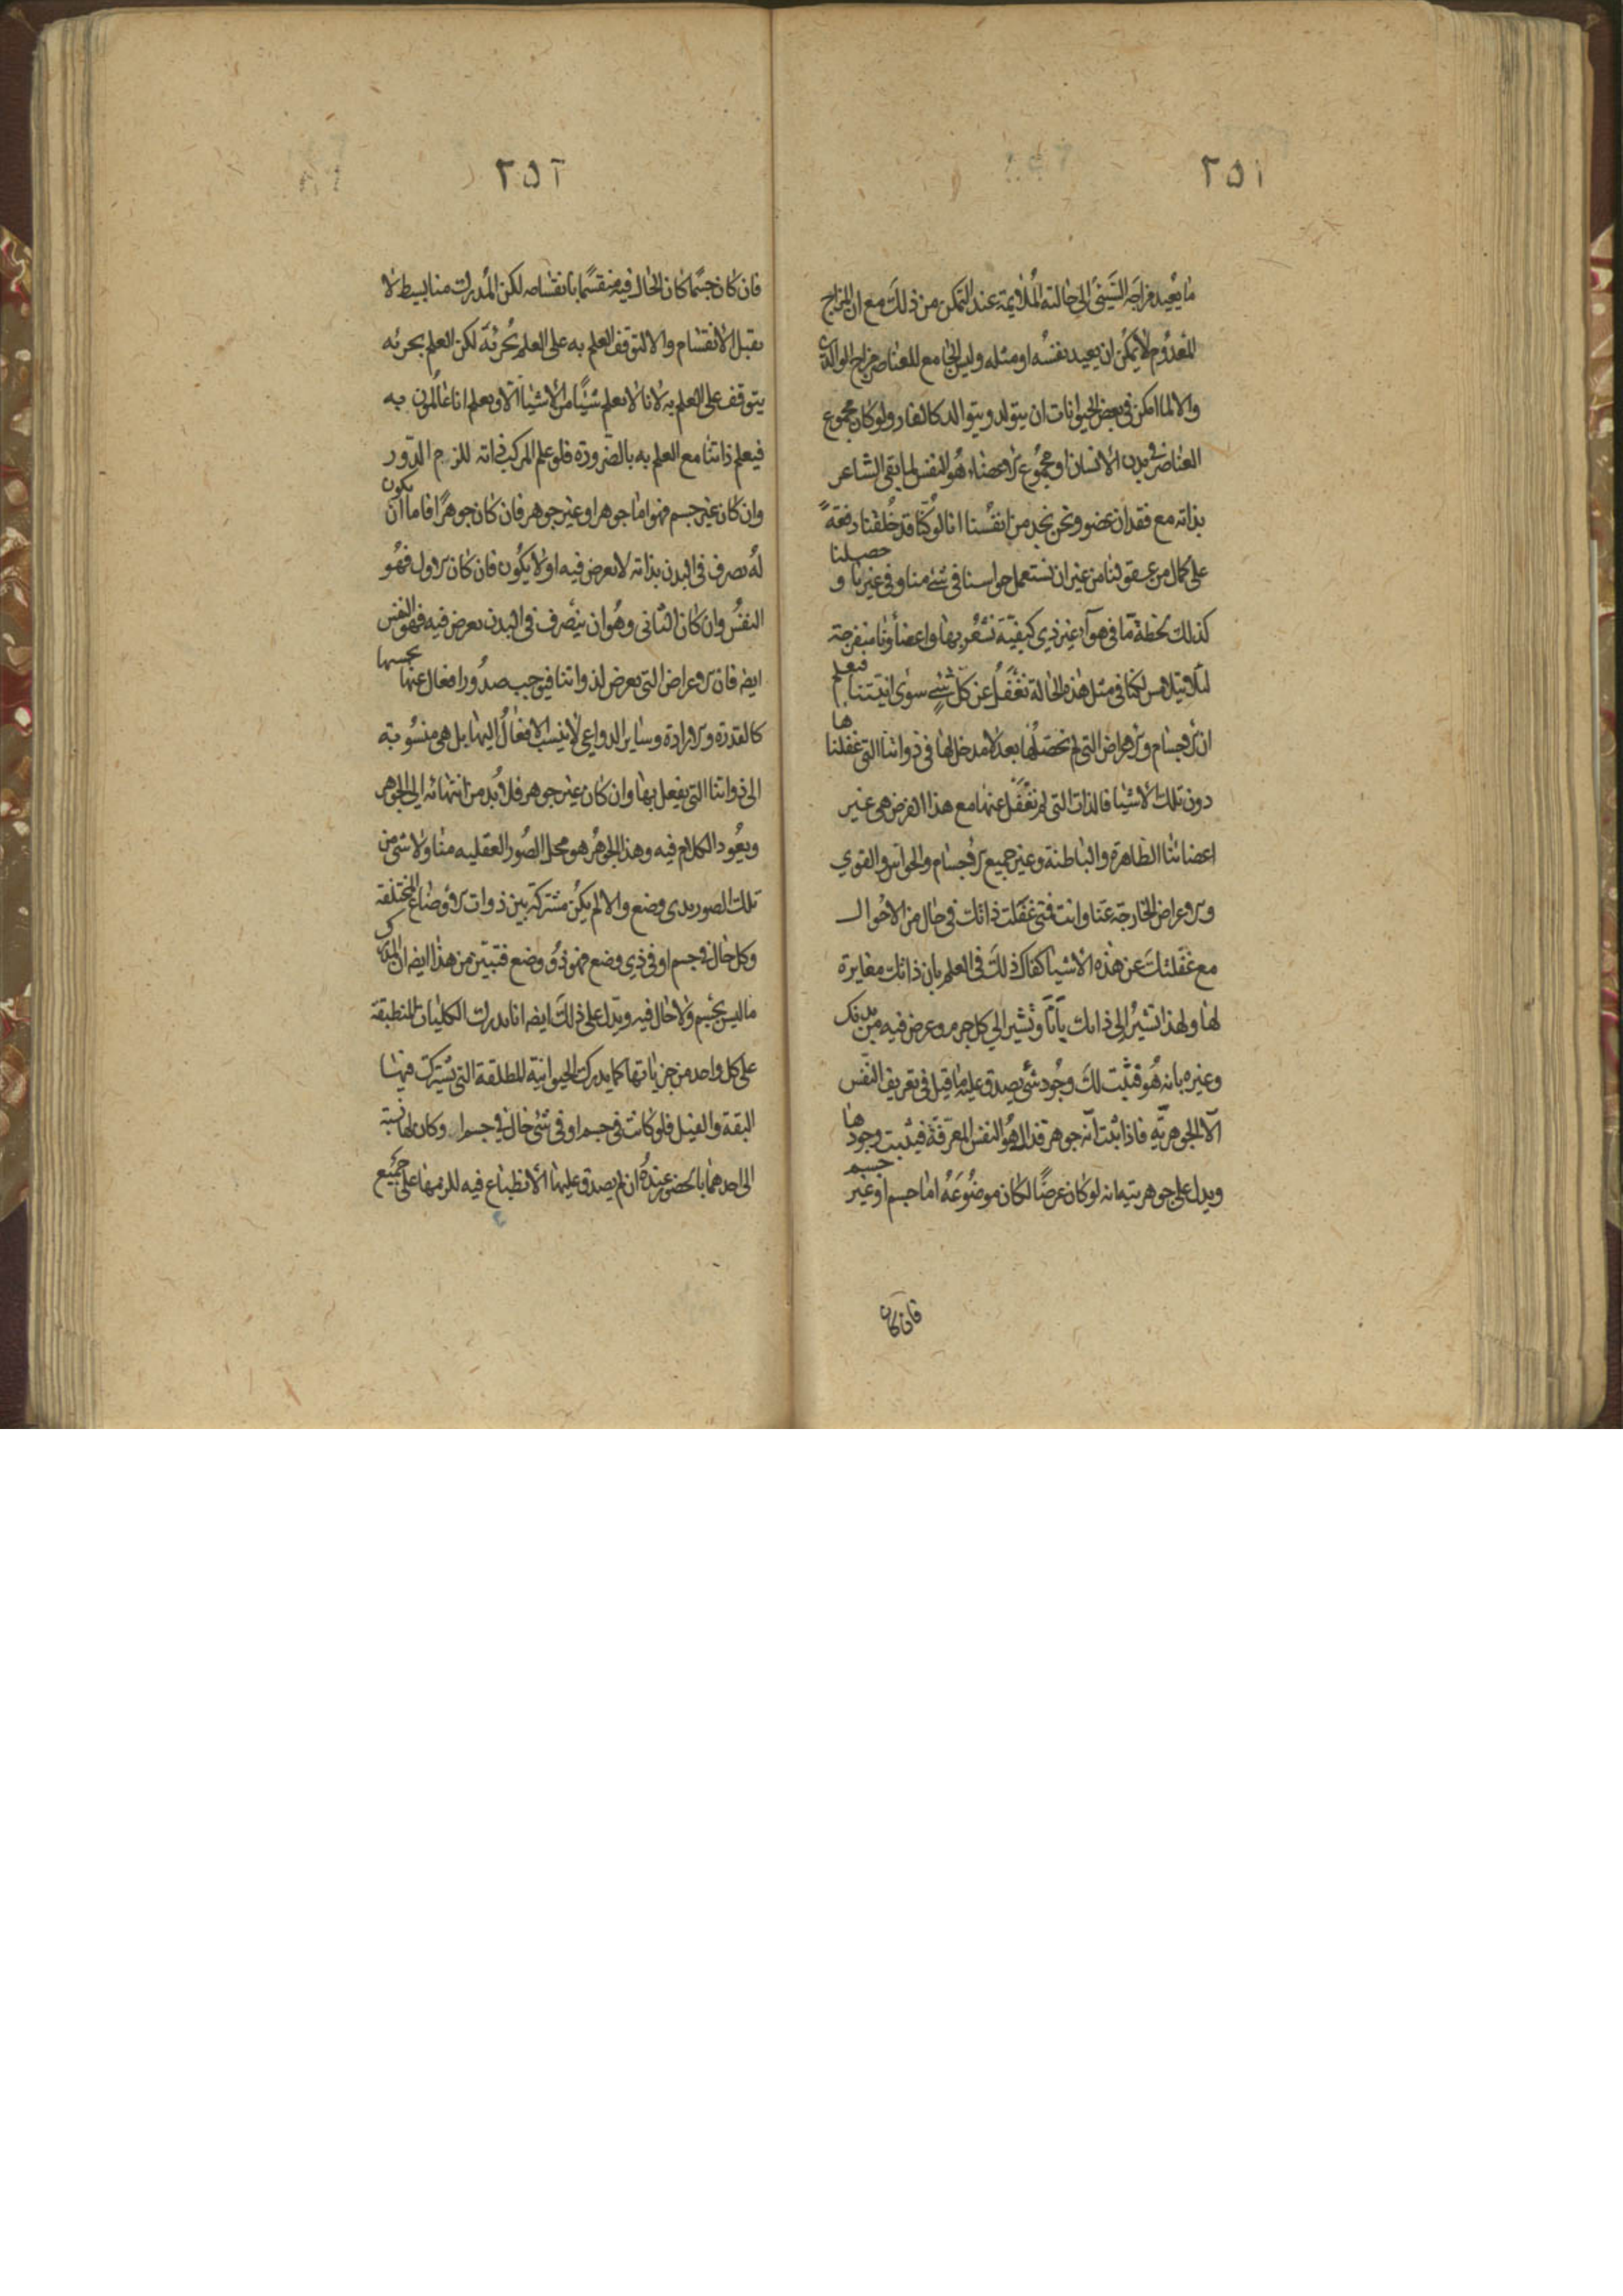 ٢٥١
ما يعيد مزاجه السيئ الى حالته الملايمة عند التمكن من ذلك مع ان المزاج
المعدوم لا يمكن ان يعيد نفسه او مثله وليس الجامع للعناصر مزاج الوالدين
والا لما امكن فى بعض الحيوانات ان يتولد ويتوالد كالفار ولو كان مجموع
العناصر فى بدن الانسان او مجموع الاعضاء هو النفس لما بقى الشاعر
بذاته مع فقدان عضو ونحن نجد من انفسنا انا لو كنا قد خلقنا دفعة
على كمال من عقولنا من غير ان نستعمل حواسنا فى شئ منا وفى غيرنا و حصلنا
كذلك لحظة ما فى هوآء غير ذي كيفية نشعر بها واعضاؤنا منفرجة
لئلا تتلامس لكنا فى مثل هذه الحالة نغفل عن كل شئ سوى انيتنا فنعلم
ان الاجسام والاعراض التى لم نحصلها بعد لا مدخل لها فى ذواتنا التى غفلناها
دون تلك الاشيا فالذات التى لم نغفل عنها مع هذا الفرض هى غير
اعضائنا الظاهرة والباطنة وغير جميع الاجسام والحواس والقوي
والاعراض الخارجة عنا وانت فمتى غفلت ذاتك فى حال من الاحوال
مع غفلتك عن هذه الاشيا كفاك ذلك فى العلم بان ذاتك مغايرة
لها ولهذا تشير الى ذاتك بانا وتشير الي كل جرم وعرض فيه من بدنك
وغيره بانه هو فثبت لك وجود شئ يصدق عليه ما قيل فى تعريف النفس
الا الجوهرية فاذا ثبت انه جوهر فذلك هو النفس المعرفة فيثبت وجودها
ويدل على جوهريته انه لو كان عرضا لكان موضوعه اما جسم او غير جسم
فان كان
٢٥٢
فان كان جسما كان الحال فيه منقسما بانقسامه لكن المدرك منا بسيط لا
يقبل الانقسام والا لتوقف العلم به على العلم بجزئه لكن العلم بجزئه
يتوقف على العلم به لانا لا نعلم شيئا من الاشيا الا ونعلم انا عالمون به
فيعلم ذاتنا مع العلم به بالضرورة فلو علم المركب ذاته للزم الدور
وان كان غير جسم فهو اما جوهر او غير جوهر فان كان جوهرا فاما ان يكون
له تصرف فى البدن بذاته لا بعرض فيه او لا يكون فان كان الاول فهو
النفس وان كان الثانى وهو ان يتصرف فى البدن بعرض فيه فهو النفس
ايضا فان الاعراض التى تعرض لذواتنا فيوجب صدور افعال عنها بحسبها
كالقدرة والارادة وساير الدواعي لا ينسب الافعال اليها بل هى منسوبة
الى ذواتنا التى يفعل بها وان كان غير جوهر فلا بد من انتهائه الى الجوهر
ويعود الكلام فيه وهذا الجوهر هو محل الصور العقليه منا ولا شئ من
تلك الصور بذى وضع والا لم يكن مشتركة بين ذوات الاوضاع المختلفة
وكل حال فى جسم او فى ذي وضع فهو ذو وضع فتبين من هذا ايضا ان المدرك
ما ليس بجسم ولا حال فيه ويدل على ذلك ايضا انا ندرك الكليات المنطبقة
على كل واحد من جزياتها كما يدرك الحيوانية المطلقة التى يشترك فيها
البقة والفيل فلو كانت فى جسم او فى شئ حال فى جسم وكان لها نسبة
الى احدهما بالحضور عنده ان لم يصدق عليها الانطباع فيه للزمها على جميع